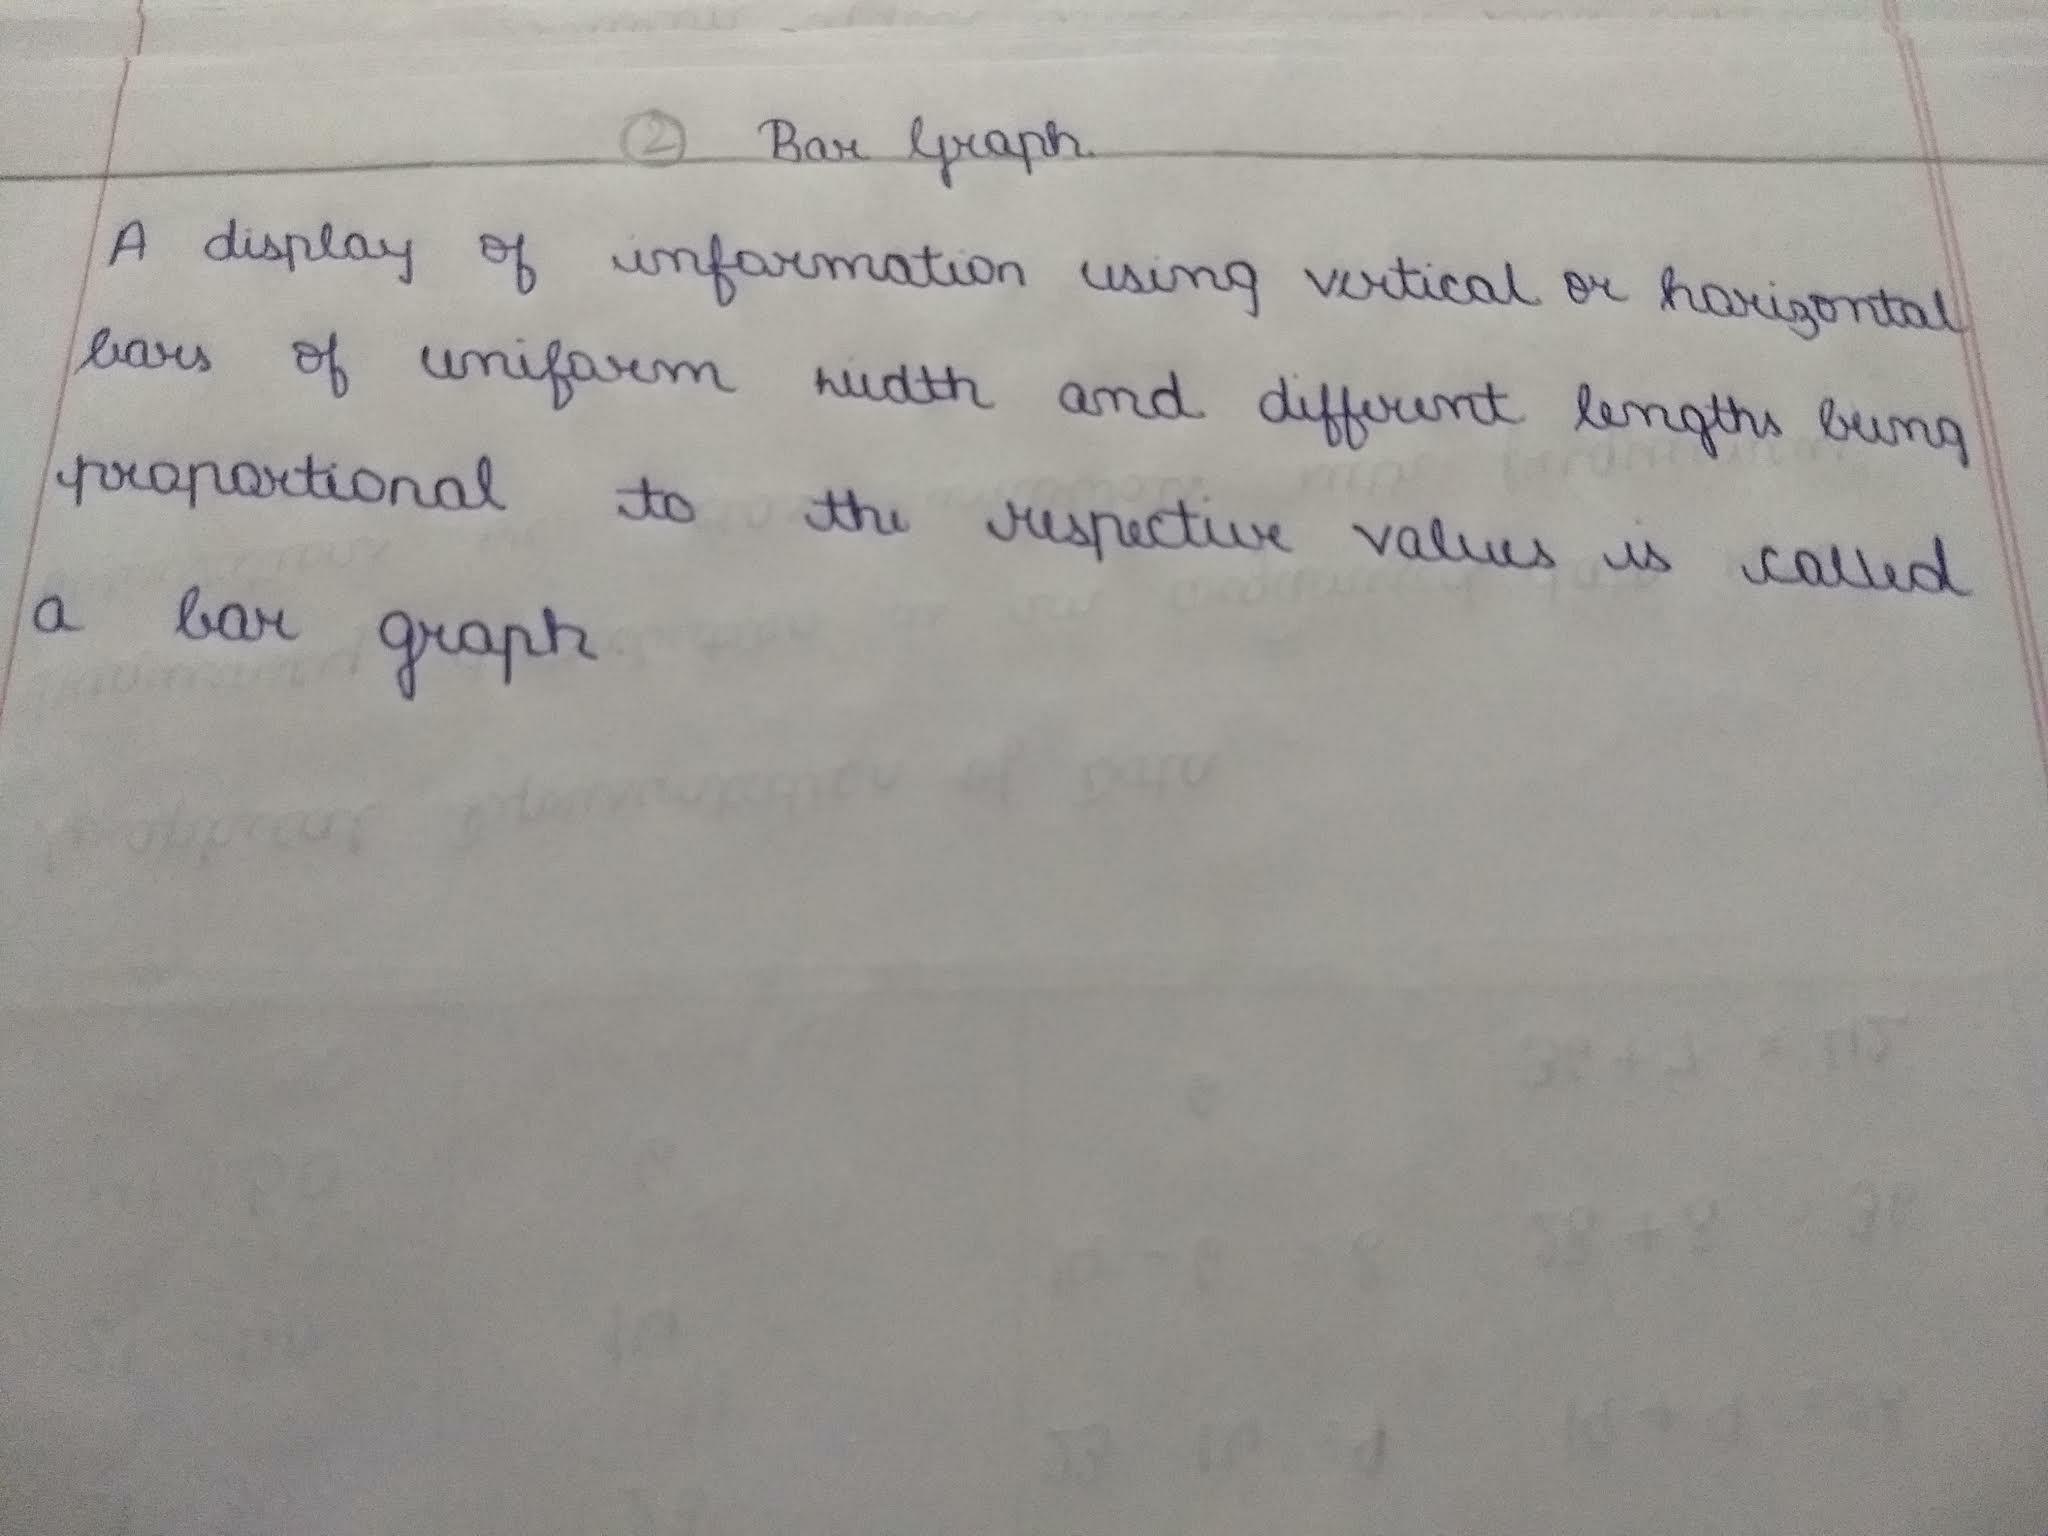 ② Bar Graph.
A display of information using vertical or horizontal
bars of uniform width and different lengths being
proportional to the respective values is called
a bar graph